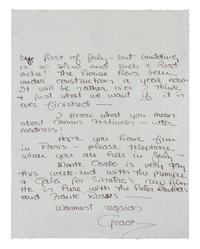 by first of July - but building
is so slow and such a head
ache! The house has been
under construction a year now
It will be rather nice I think
+ just what we want if it is
ever finished -
I know what you mean
about Cannes Festivals - utter
madness!
Hope you have fun
in Paris - please telephone
when you are here in July -
Monte Carlo is very gay
this week-end with the premiere
+ Gala for Sinatra's new film
He is here with the Peter Lawfords
and Frank
Warmest regards
Grace